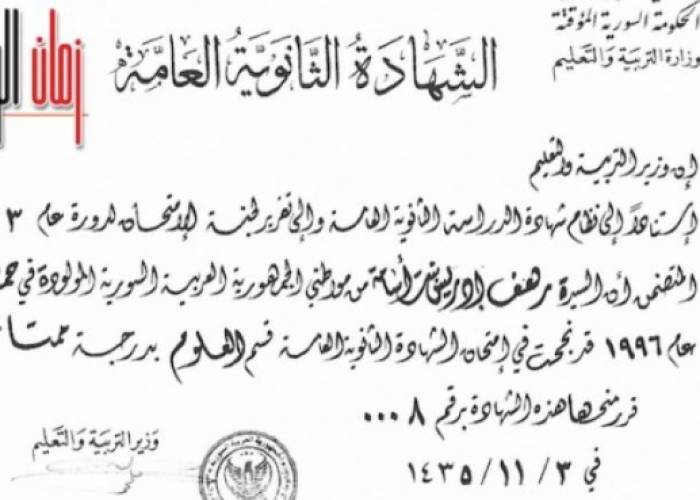 الحكومة السورية المؤقتة
وزارة التربية والتعليم
الشهادة الثانوية العامة
زمان
إن وزير التربية والتعليم
إستناداً إلى نظام شهادة الدراسة الثانوية العامة وإلى تقرير لجنة الإمتحان لدورة عام ٣
المتضمن أن السيدة رهف إدريس بنت أسامة من مواطني الجمهورية العربية السورية المولودة في
عام ١٩٩٦ قد نجحت في إمتحان الشهادة الثانوية العامة قسم العلوم بدرجة
قرر منحها هذه الشهادة برقم ٠٠٠٨
في ٣ / ١١ / ١٤٣٥
وزير التربية والتعليم